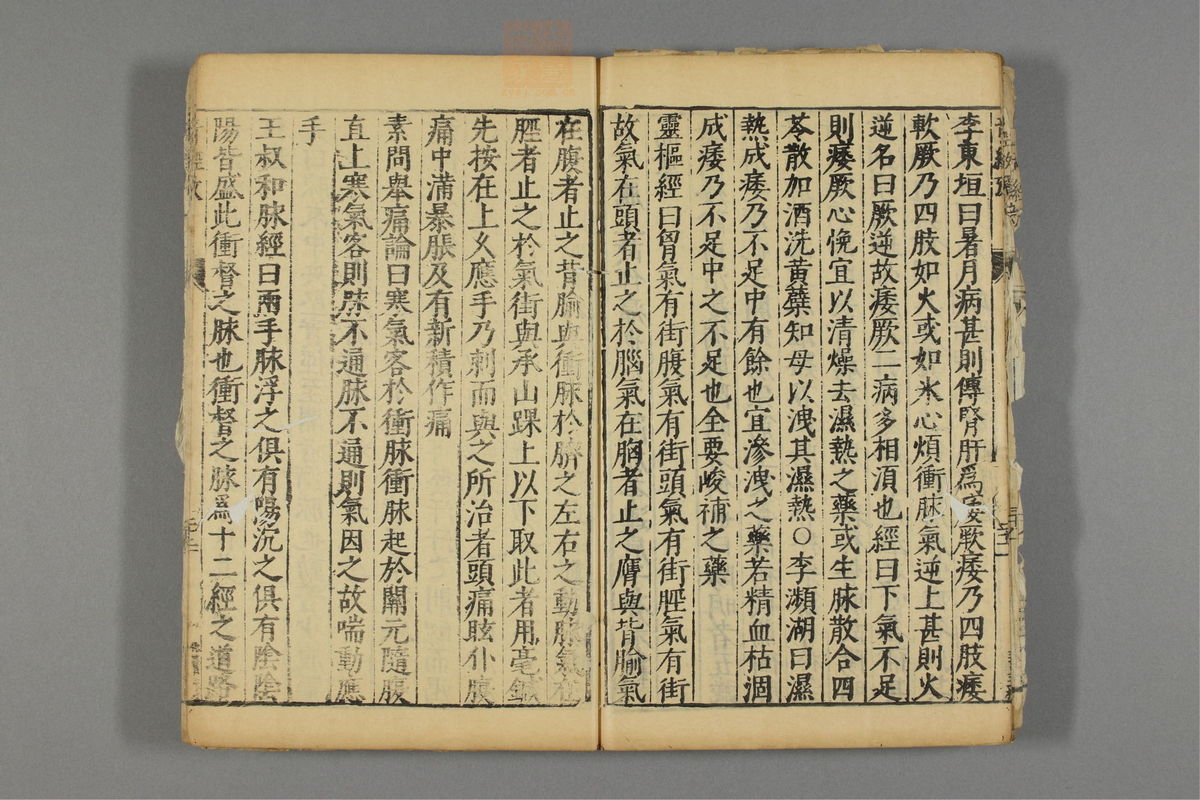 李東垣曰暑月病甚則傳腎肝爲痿厥痿乃四肢痿
軟厥乃四肢如火或如氷心煩衝脉氣逆上甚則火
逆名曰厥逆故痿厥二病多相須也經曰下氣不足
則痿厥心悗宜以清燥去濕熱之藥或生脉散合四
苓散加酒洗黃蘗知母以洩其濕熱○李瀕湖曰濕
熱成痿乃不足中有餘也宜滲洩之藥若精血枯涸
成痿乃不足中之不足也全要峻補之藥
靈樞經曰胷氣有街腹氣有街頭氣有街脛氣有街
故氣在頭者止之於腦氣在胸者止之膺與背腧氣
在腹者止之背腧與衝脉於臍之左右之動脉氣在
脛者止之於氣街與承山踝上以下取此者用毫鍼
先按在上乆應手乃刺而與之所治者頭痛眩仆腹
痛中滿暴脹及有新積作痛
素問舉痛論曰寒氣客於衝脉衝脉起於關元隨腹
直上寒氣客則脉不通脉不通則氣因之故喘動應
手
王叔和脉經曰兩手脉浮之俱有陽沉之俱有陰陰
陽皆盛此衝督之脉也衝督之脉爲十二經之道路